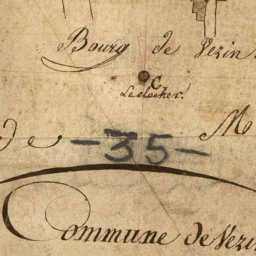 Bourg de Vezin.
C
Le clocher.
de -35- M
Commune de Vezin